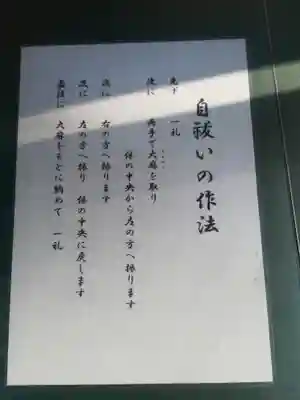 自祓いの作法
先ず 一礼
後に 両手で大麻を取り
体の中央から左の方へ振ります
次に 右の方へ振ります
次に 左の方へ振り 体の中央に戻します
最後に 大麻をもとに納めて 一礼